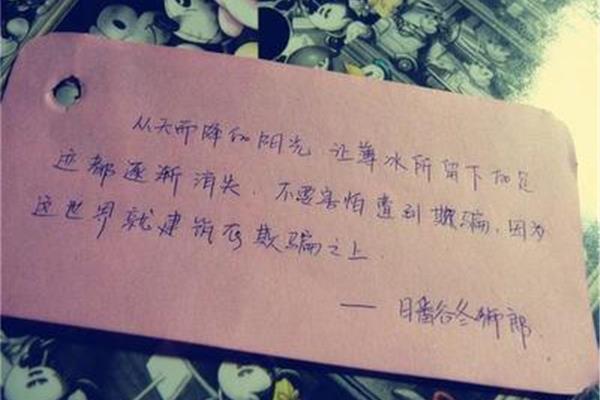 从天而降的阳光，让薄冰所留下的足
迹都逐渐消失，不要害怕遭到欺骗，因为
这世界就建筑在欺骗之上。
—— 日番谷冬狮郎.